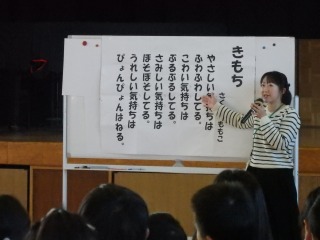 きもち
さ
ももこ
やさしい 持ちは
ふわふわしてる。
こわい気持ちは
ぶるぶるしてる。
さみしい気持ちは
ぽそぽそしてる。
うれしい気持ちは
ぴょんぴょんはねる。